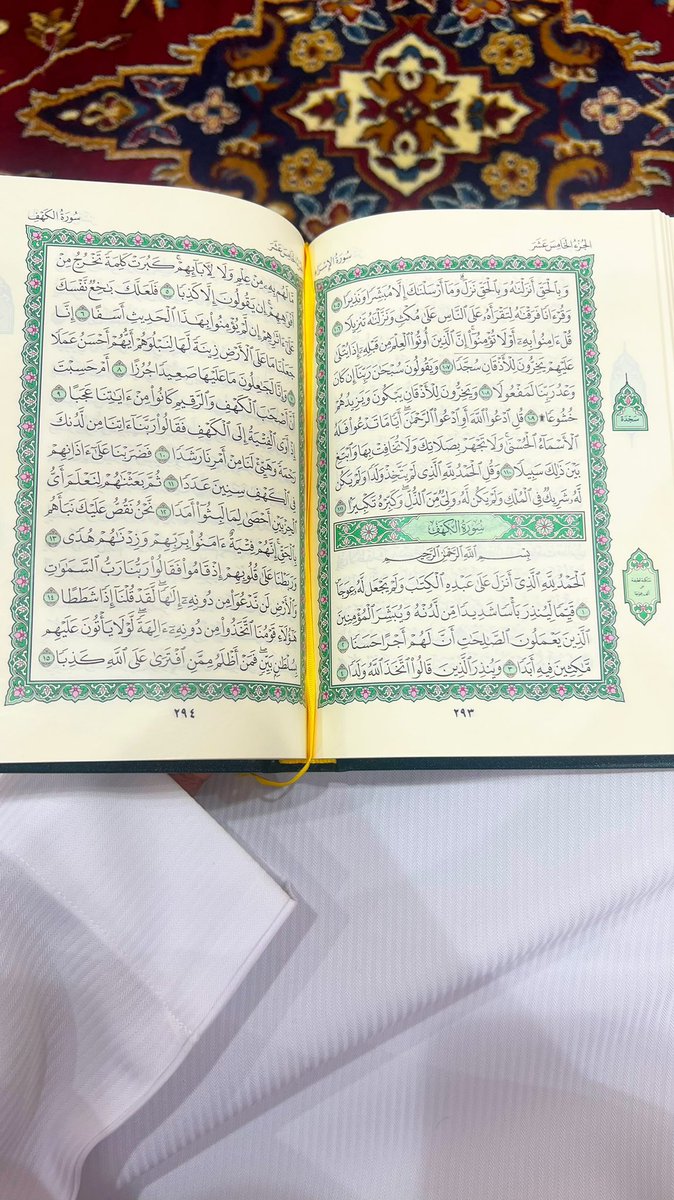 الجزء الخامس عشر
سورة الإسراء
وَبِالْحَقِّ أَنزَلْنَاهُ وَبِالْحَقِّ نَزَلَ وَمَا أَرْسَلْنَاكَ إِلَّا مُبَشِّرًا وَنَذِيرًا ١٠٥
وَقُرْءَانًا فَرَقْنَاهُ لِتَقْرَأَهُ عَلَى النَّاسِ عَلَى مُكْثٍ وَنَزَّلْنَاهُ تَنزِيلًا ١٠٦
قُلْ ءَامِنُوا بِهِ أَوْ لَا تُؤْمِنُوا إِنَّ الَّذِينَ أُوتُوا الْعِلْمَ مِن قَبْلِهِ إِذَا يُتْلَى
عَلَيْهِمْ يَخِرُّونَ لِلْأَذْقَانِ سُجَّدًا ١٠٧ وَيَقُولُونَ سُبْحَانَ رَبِّنَا إِن كَانَ
وَعْدُ رَبِّنَا لَمَفْعُولًا ١٠٨ وَيَخِرُّونَ لِلْأَذْقَانِ يَبْكُونَ وَيَزِيدُهُمْ
خُشُوعًا ۩ ١٠٩ قُلِ ادْعُوا اللَّهَ أَوِ ادْعُوا الرَّحْمَٰنَ أَيًّا مَّا تَدْعُوا فَلَهُ
الْأَسْمَاءُ الْحُسْنَى وَلَا تَجْهَرْ بِصَلَاتِكَ وَلَا تُخَافِتْ بِهَا وَابْتَغِ
بَيْنَ ذَٰلِكَ سَبِيلًا ١١٠ وَقُلِ الْحَمْدُ لِلَّهِ الَّذِي لَمْ يَتَّخِذْ وَلَدًا وَلَمْ يَكُن
لَّهُ شَرِيكٌ فِي الْمُلْكِ وَلَمْ يَكُن لَّهُ وَلِيٌّ مِّنَ الذُّلِّ وَكَبِّرْهُ تَكْبِيرًا ١١١
سورة الكهف
بِسْمِ اللَّهِ الرَّحْمَٰنِ الرَّحِيمِ
الْحَمْدُ لِلَّهِ الَّذِي أَنزَلَ عَلَى عَبْدِهِ الْكِتَابَ وَلَمْ يَجْعَل لَّهُ عِوَجًا ١
قَيِّمًا لِّيُنذِرَ بَأْسًا شَدِيدًا مِّن لَّدُنْهُ وَيُبَشِّرَ الْمُؤْمِنِينَ
الَّذِينَ يَعْمَلُونَ الصَّالِحَاتِ أَنَّ لَهُمْ أَجْرًا حَسَنًا ٢
مَّاكِثِينَ فِيهِ أَبَدًا ٣ وَيُنذِرَ الَّذِينَ قَالُوا اتَّخَذَ اللَّهُ وَلَدًا ٤
سجدة
سكتة لطيفة
٢٩٣
سورة الكهف
مَّا لَهُم بِهِ مِنْ عِلْمٍ وَلَا لِآبَائِهِمْ كَبُرَتْ كَلِمَةً تَخْرُجُ مِنْ
أَفْوَاهِهِمْ إِن يَقُولُونَ إِلَّا كَذِبًا ٥ فَلَعَلَّكَ بَاخِعٌ نَّفْسَكَ
عَلَى ءَاثَارِهِمْ إِن لَّمْ يُؤْمِنُوا بِهَٰذَا الْحَدِيثِ أَسَفًا ٦ إِنَّا
جَعَلْنَا مَا عَلَى الْأَرْضِ زِينَةً لَّهَا لِنَبْلُوَهُمْ أَيُّهُمْ أَحْسَنُ عَمَلًا
٧ وَإِنَّا لَجَاعِلُونَ مَا عَلَيْهَا صَعِيدًا جُرُزًا ٨ أَمْ حَسِبْتَ
أَنَّ أَصْحَابَ الْكَهْفِ وَالرَّقِيمِ كَانُوا مِنْ ءَايَاتِنَا عَجَبًا ٩
إِذْ أَوَى الْفِتْيَةُ إِلَى الْكَهْفِ فَقَالُوا رَبَّنَا ءَاتِنَا مِن لَّدُنكَ
رَحْمَةً وَهَيِّئْ لَنَا مِنْ أَمْرِنَا رَشَدًا ١٠ فَضَرَبْنَا عَلَى ءَاذَانِهِمْ
فِي الْكَهْفِ سِنِينَ عَدَدًا ١١ ثُمَّ بَعَثْنَاهُمْ لِنَعْلَمَ أَيُّ
الْحِزْبَيْنِ أَحْصَى لِمَا لَبِثُوا أَمَدًا ١٢ نَّحْنُ نَقُصُّ عَلَيْكَ نَبَأَهُم
بِالْحَقِّ إِنَّهُمْ فِتْيَةٌ ءَامَنُوا بِرَبِّهِمْ وَزِدْنَاهُمْ هُدًى ١٣
وَرَبَطْنَا عَلَى قُلُوبِهِمْ إِذْ قَامُوا فَقَالُوا رَبُّنَا رَبُّ السَّمَاوَاتِ
وَالْأَرْضِ لَن نَّدْعُوَا مِن دُونِهِ إِلَٰهًا لَّقَدْ قُلْنَا إِذًا شَطَطًا ١٤
هَٰؤُلَاءِ قَوْمُنَا اتَّخَذُوا مِن دُونِهِ ءَالِهَةً لَّوْلَا يَأْتُونَ عَلَيْهِم
بِسُلْطَانٍ بَيِّنٍ فَمَنْ أَظْلَمُ مِمَّنِ افْتَرَى عَلَى اللَّهِ كَذِبًا ١٥
٢٩٤